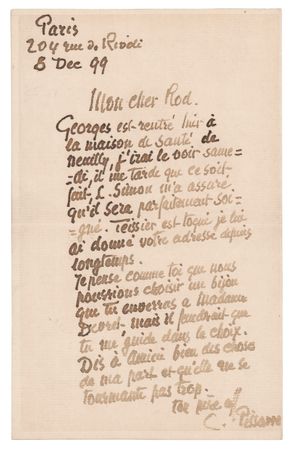 Paris
204 rue de Rivoli
8 Dec 99
Mon cher Rod.
Georges est rentré hier à
la maison de santé de
Neuilly, j'irai le voir same-
-di, il me tarde que ce soit
fait, L. Simon m'a assuré
qu'il sera parfaitement soi-
gné. Teissier est toqué je lui
ai donné votre adresse depuis
longtemps.
Je pense comme toi que nous
pourrions choisir un bijou
que tu enverras à Madame
mais il faudrait que
tu me guide dans le choix.
Dis à Amicie bien des choses
de ma part et qu'elle ne se
tourmente pas trop.
ton père aff
C. Pissarro